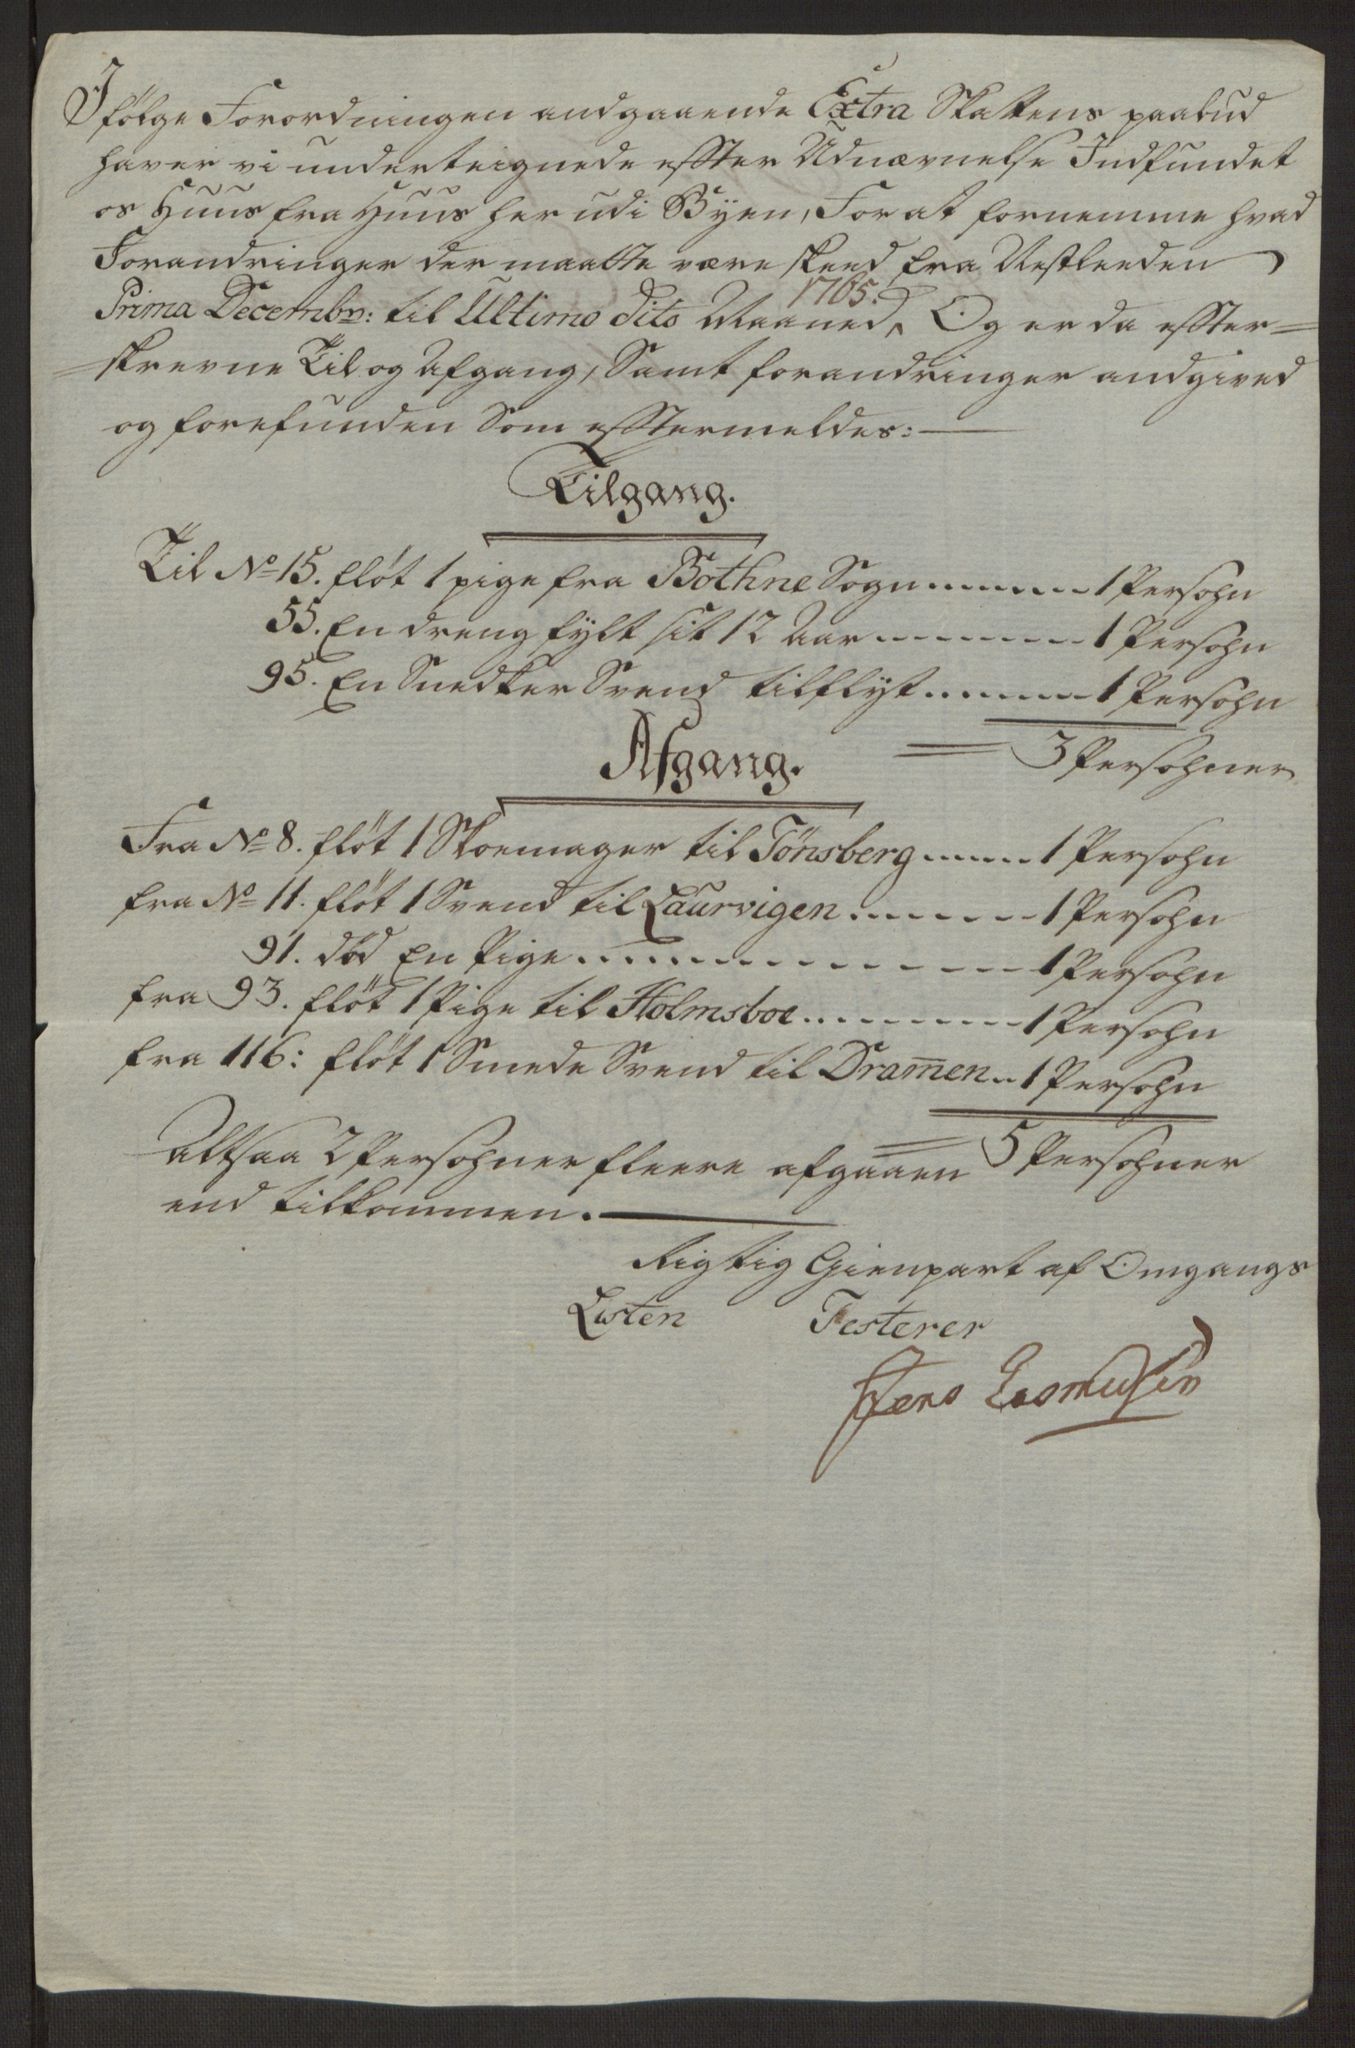 Ifølge Forordningen andgaaende Extra Skattens paabud
haver vi underteignede effter Udnævnelse Indfundet
os Huus fra Huus her udi Byen, For at fornemme hvad
Forandringer der maatte være skeed fra Nestleeden
1765.
Prima Decembr: til Ultimo dito Maaned, Og er da effter=
=skrevne Til og Afgang, Samt forandringer andgived
og forefunden som efftermeldes:
Tilgang.
Til No 15. fløt 1 pige fra Bothne Sogn 1 Persohn
55. En dreng fylt sit 12 Aar 1 Persohn
95. En Snedker Svend tilflyt 1 Persohn
3 Persohner
Afgang.
Fra No 8. fløt 1 Skoemager til Tönsberg 1 Persohn
fra No 11. fløt 1 Svend til Laurvigen 1 Persohn
91. död En Pige 1 Persohn
fra 93. fløt 1 Pige til Holmsboe 1 Persohn
fra 116: fløt 1 Smede Svend til Dram̄en 1 Persohn
5 Persohner
Altsaa 2 Persohner fleere afgaaen
end tilkommen.
Rigtig Gienpart af Omgangs
Listen Testerer
Jens Rasmusen